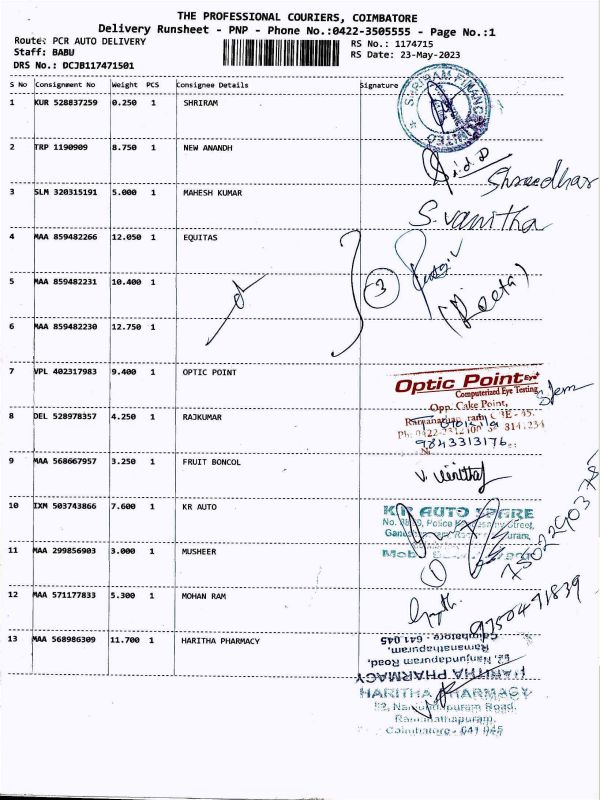 THE PROFESSIONAL COURIERS, COIMBATORE
Delivery Runsheet - PNP - Phone No.:0422-3505555 - Page No.:1
Route: PCR AUTO DELIVERY
Staff: BABU
DRS No.: DCJB117471501
RS No.: 1174715
RS Date: 23-May-2023
S No Consignment No Weight PCS Consignee Details Signature
1 KUR 528837259 0.250 1 SHRIRAM
SHRIRAM FINANCE LIMITED
2 TRP 1190909 8.750 1 NEW ANANDH
Shreedhar
3 SLM 320315191 5.000 1 MAHESH KUMAR
S. Vanitha
4 MAA 859482266 12.050 1 EQUITAS
5 MAA 859482231 10.400 1
3
(Reeta)
6 MAA 859482230 12.750 1
7 VPL 402317983 9.400 1 OPTIC POINT
Optic Point Eye+
Computerized Eye Testing
Opp. Cake Point,
8 DEL 528978357 4.250 1 RAJKUMAR
9843313176
9 MAA 568667957 3.250 1 FRUIT BONCOL
10 IXM 503743866 7.600 1 KR AUTO
KR AUTO SPARE
11 MAA 299856903 3.000 1 MUSHEER
1
12 MAA 571177833 5.300 1 MOHAN RAM
9750471839
13 MAA 568986309 11.700 1 HARITHA PHARMACY
HARITHA PHARMACY
52, Nanjundapuram Road,
Ramanathapuram,
Coimbatore - 641 045
HARITHA PHARMACY
52, Nanjundapuram Road,
Ramanathapuram,
Coimbatore - 641 045